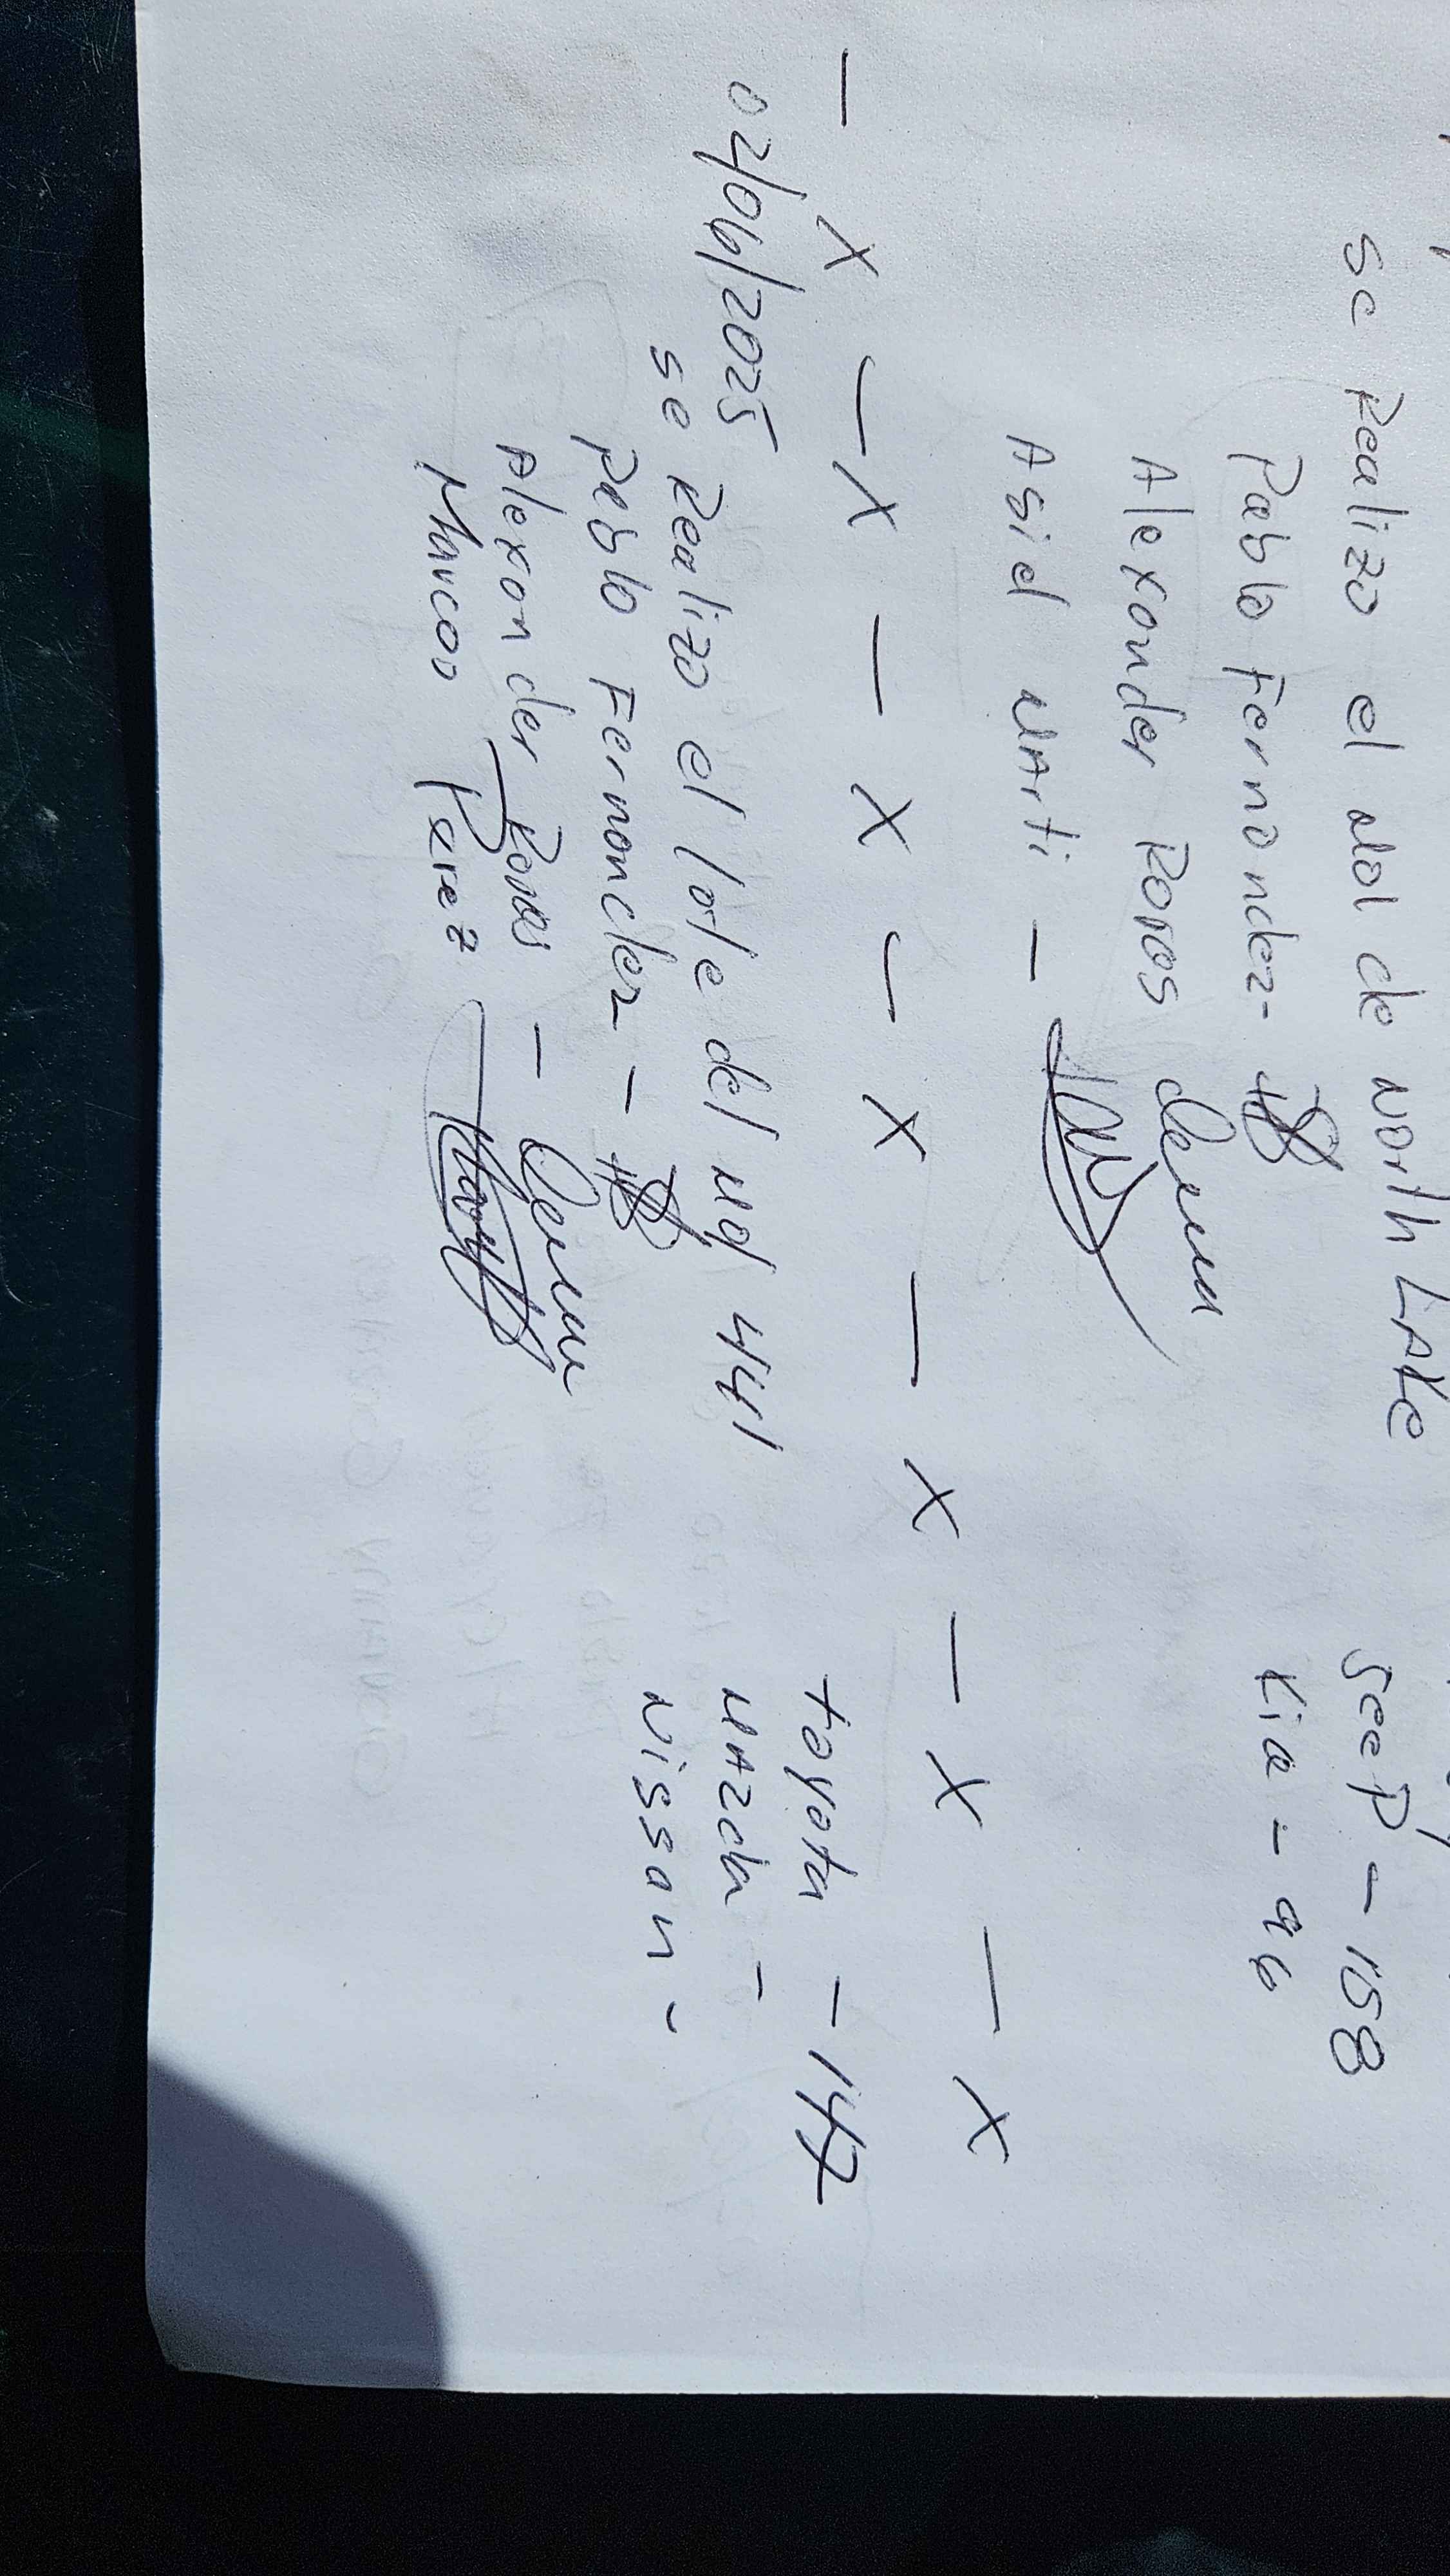 se Realizo el Mol de North LAKe
Jeep - 158
Pablo Fernandez -
Kia - 96
Alexander Rojas
Asiel MArti -
- X - X - X - X - X - X - X
02/06/2025
toyota - 147
se Realizo el lote del Md 441
MAzda -
Pablo Fernandez -
Nissan -
Alexander Rojas -
Marcos Perez